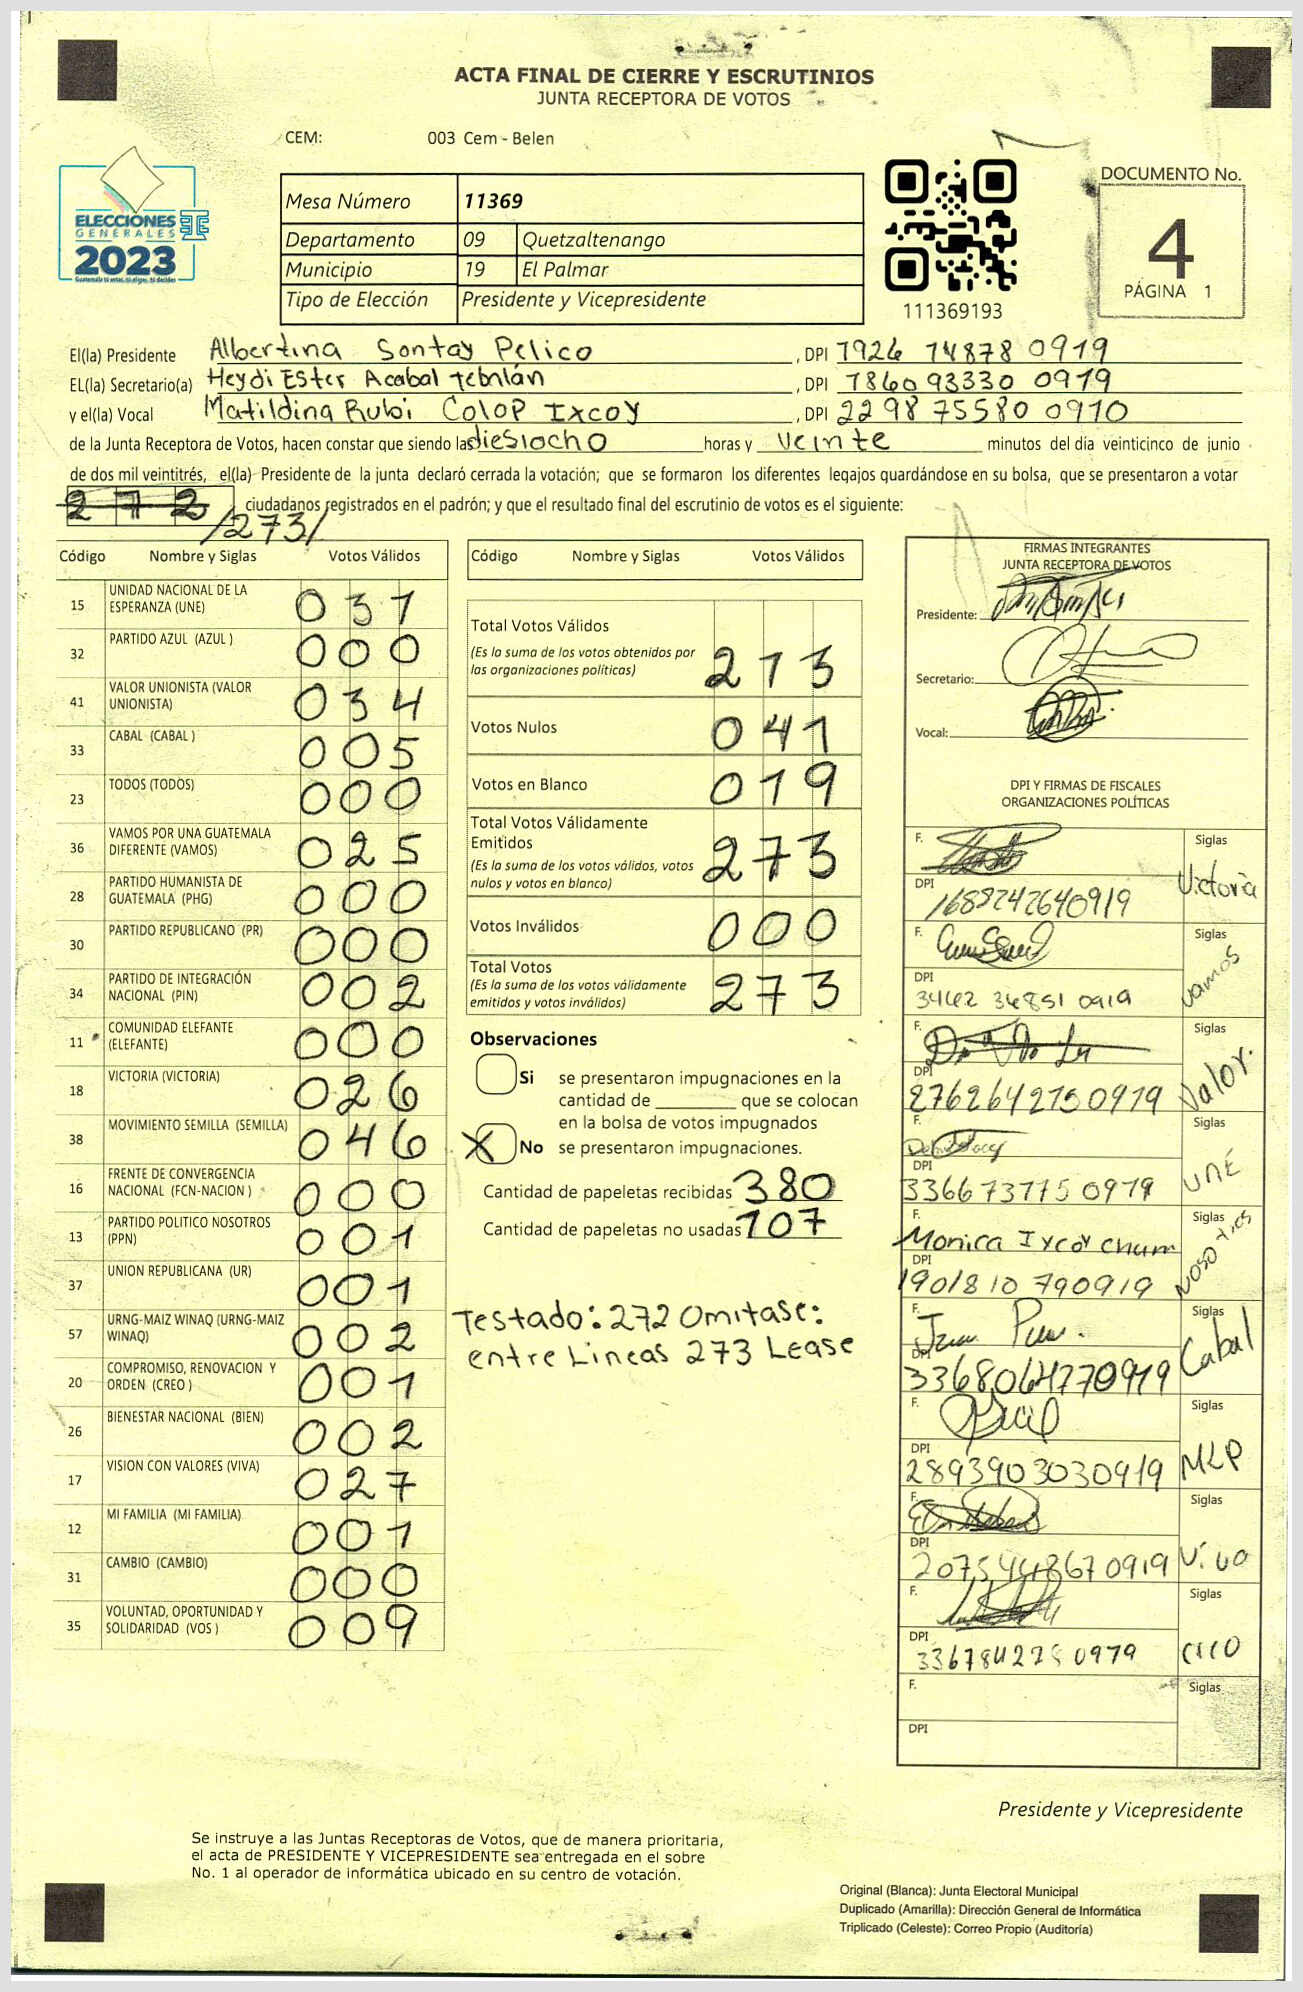 ACTA FINAL DE CIERRE Y ESCRUTINIOS
JUNTA RECEPTORA DE VOTOS
CEM: 003 Cem - Belen
ELECCIONES
GENERALES
2023
Mesa Número 11369
Departamento 09 Quetzaltenango
Municipio 19 El Palmar
Tipo de Elección Presidente y Vicepresidente
111369193
DOCUMENTO No.
4
PÁGINA 1
El(la) Presidente Albertina Sontay Pelico, DPI 1926 74878 0919
EL(la) Secretario(a) Heydi Ester Acabal Tebalán, DPI 7860 93330 0919
y el(la) Vocal Matildina Rubi Colop Ixcoy, DPI 2298 75580 0910
de la Junta Receptora de Votos, hacen constar que siendo las diesiocho horas y veinte minutos del día veinticinco de junio
de dos mil veintitrés, el(la) Presidente de la junta declaró cerrada la votación; que se formaron los diferentes legajos quardándose en su bolsa, que se presentaron a votar
272 /273/ ciudadanos registrados en el padrón; y que el resultado final del escrutinio de votos es el siguiente:
Código Nombre y Siglas Votos Válidos
15 UNIDAD NACIONAL DE LA ESPERANZA (UNE) 031
32 PARTIDO AZUL (AZUL ) 000
41 VALOR UNIONISTA (VALOR UNIONISTA) 034
33 CABAL (CABAL ) 005
23 TODOS (TODOS) 000
36 VAMOS POR UNA GUATEMALA DIFERENTE (VAMOS) 025
28 PARTIDO HUMANISTA DE GUATEMALA (PHG) 000
30 PARTIDO REPUBLICANO (PR) 000
34 PARTIDO DE INTEGRACIÓN NACIONAL (PIN) 002
11 COMUNIDAD ELEFANTE (ELEFANTE) 000
18 VICTORIA (VICTORIA) 026
38 MOVIMIENTO SEMILLA (SEMILLA) 046
16 FRENTE DE CONVERGENCIA NACIONAL (FCN-NACION ) 000
13 PARTIDO POLITICO NOSOTROS (PPN) 001
37 UNION REPUBLICANA (UR) 001
57 URNG-MAIZ WINAQ (URNG-MAIZ WINAQ) 002
20 COMPROMISO, RENOVACION Y ORDEN (CREO ) 001
26 BIENESTAR NACIONAL (BIEN) 002
17 VISION CON VALORES (VIVA) 027
12 MI FAMILIA (MI FAMILIA) 001
31 CAMBIO (CAMBIO) 000
35 VOLUNTAD, OPORTUNIDAD Y SOLIDARIDAD (VOS ) 009
Código Nombre y Siglas Votos Válidos
Total Votos Válidos 213
(Es la suma de los votos obtenidos por
las organizaciones políticas)
Votos Nulos 041
Votos en Blanco 019
Total Votos Válidamente
Emitidos 273
(Es la suma de los votos válidos, votos
nulos y votos en blanco)
Votos Inválidos 000
Total Votos 273
(Es la suma de los votos válidamente
emitidos y votos inválidos)
Observaciones
Si se presentaron impugnaciones en la
cantidad de ________ que se colocan
en la bolsa de votos impugnados
X No se presentaron impugnaciones.
Cantidad de papeletas recibidas 380
Cantidad de papeletas no usadas 107
Testado: 272 Omitase:
entre Lineas 273 Lease
FIRMAS INTEGRANTES
JUNTA RECEPTORA DE VOTOS
Presidente:
Secretario:
Vocal:
DPI Y FIRMAS DE FISCALES
ORGANIZACIONES POLÍTICAS
F. Siglas Victoria
DPI 1688242640919
F. Siglas Vamos
DPI 3462 36851 0919
F. Siglas Valor.
DPI 2762642150919
F. Siglas UNE
DPI 3366737750919
F. Monica Ixcoy Chum Siglas
DPI 1901810790919
F. Siglas Cabal
DPI 3368064770919
F. Siglas MLP
DPI 2893903030919
F. Siglas Viva
DPI 2075448670919
F. Siglas
DPI 3367842280919
F. Siglas
DPI
Presidente y Vicepresidente
Se instruye a las Juntas Receptoras de Votos, que de manera prioritaria,
el acta de PRESIDENTE Y VICEPRESIDENTE sea entregada en el sobre
No. 1 al operador de informática ubicado en su centro de votación.
Original (Blanca): Junta Electoral Municipal
Duplicado (Amarilla): Dirección General de Informática
Triplicado (Celeste): Correo Propio (Auditoría)